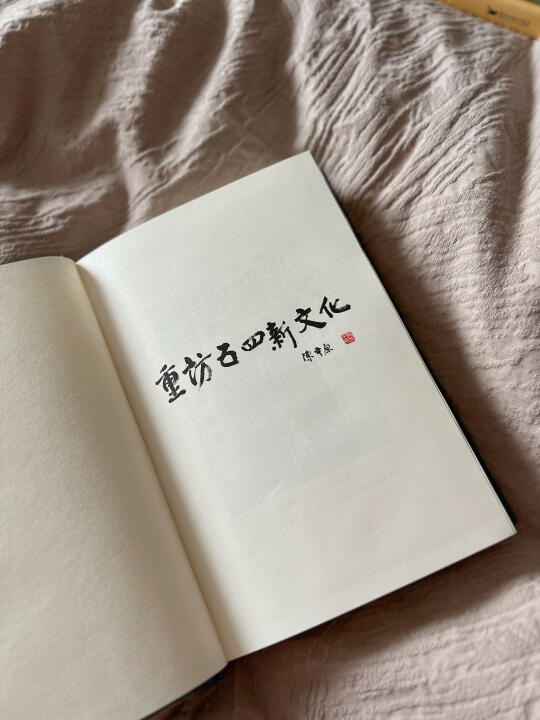 重访五四新文化
陈平原